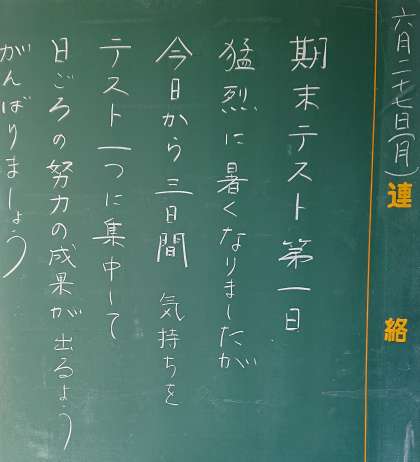 六月二十七日(月)
連絡
期末テスト第一日
猛烈に暑くなりましたが
今日から三日間 気持ちを
テスト一つに集中して
日ごろの努力の成果が出るよう
がんばりましょう